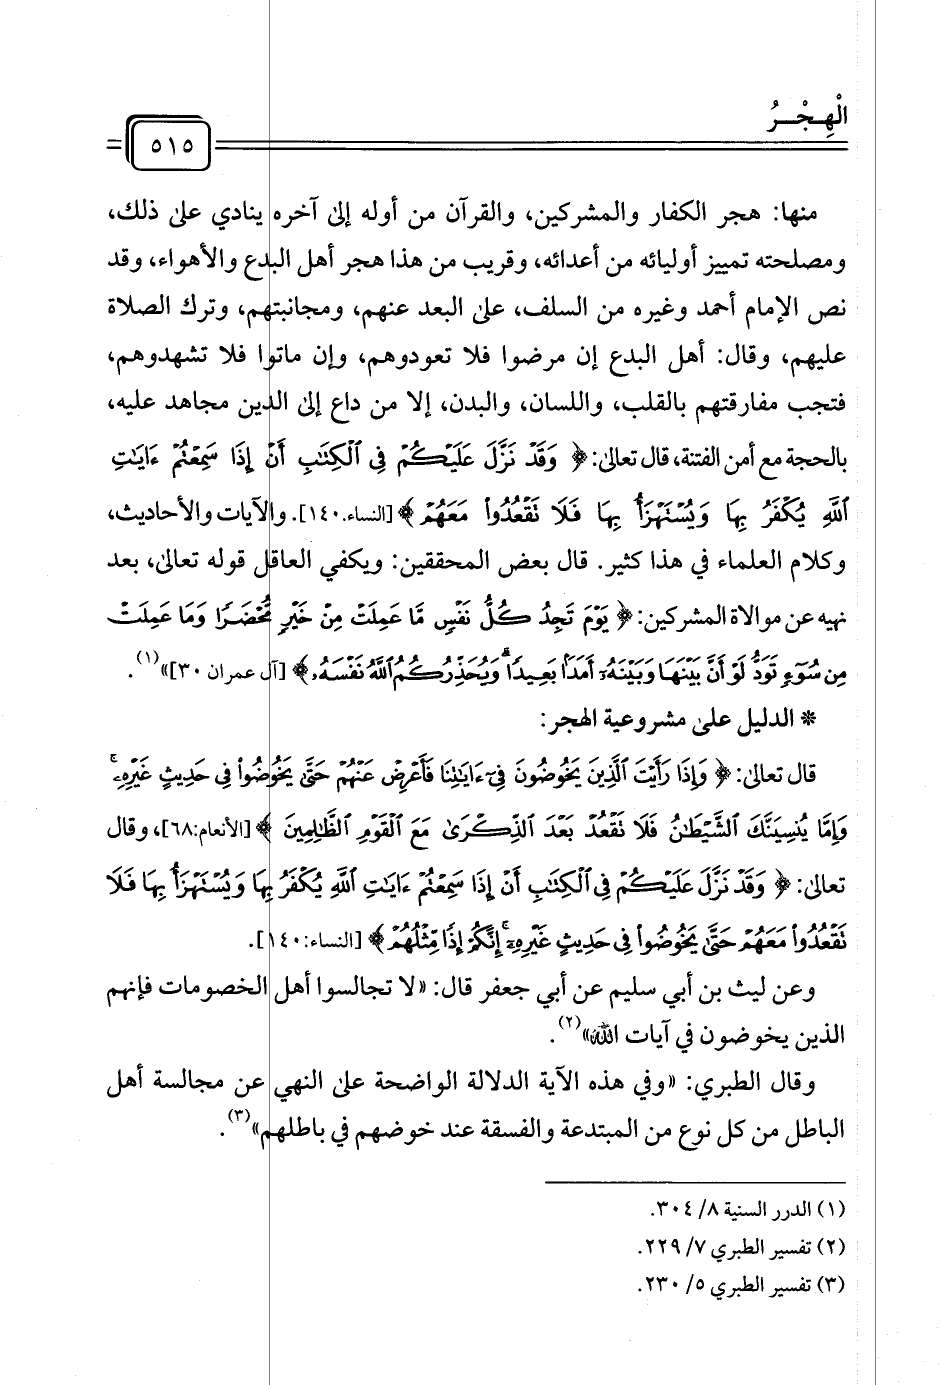 الْهِجْـرُ
٥١٥
منها: هجر الكفار والمشركين، والقرآن من أوله إلىٰ آخره ينادي علىٰ ذلك،
ومصلحته تمييز أوليائه من أعدائه، وقريب من هذا هجر أهل البدع والأهواء، وقد
نص الإمام أحمد وغيره من السلف، علىٰ البعد عنهم، ومجانبتهم، وترك الصلاة
عليهم، وقال: أهل البدع إن مرضوا فلا تعودوهم، وإن ماتوا فلا تشهدوهم،
فتجب مفارقتهم بالقلب، واللسان، والبدن، إلا من داع إلىٰ الدين مجاهد عليه،
بالحجة مع أمن الفتنة، قال تعالىٰ: ﴿ وَقَدْ نَزَّلَ عَلَيْكُمْ فِي ٱلْكِتَٰبِ أَنْ إِذَا سَمِعْتُمْ ءَايَٰتِ
ٱللَّهِ يُكْفَرُ بِهَا وَيُسْتَهْزَأُ بِهَا فَلَا نَقْعُدُوا۟ مَعَهُمْ ﴾ [النساء.١٤٠]. والآيات والأحاديث،
وكلام العلماء في هذا كثير. قال بعض المحققين: ويكفي العاقل قوله تعالىٰ، بعد
نهيه عن موالاة المشركين: ﴿ يَوْمَ تَجِدُ كُلُّ نَفْسٍ مَّا عَمِلَتْ مِنْ خَيْرٍ مُّحْضَرًا وَمَا عَمِلَتْ
مِن سُوٓءٍ تَوَدُّ لَوْ أَنَّ بَيْنَهَا وَبَيْنَهُۥٓ أَمَدًۢا بَعِيدًا ۗ وَيُحَذِّرُكُمُ ٱللَّهُ نَفْسَهُۥ ﴾ [آل عمران ٣٠]»(١).
* الدليل علىٰ مشروعية الهجر:
قال تعالىٰ: ﴿ وَإِذَا رَأَيْتَ ٱلَّذِينَ يَخُوضُونَ فِىٓ ءَايَٰتِنَا فَأَعْرِضْ عَنْهُمْ حَتَّىٰ يَخُوضُوا۟ فِى حَدِيثٍ غَيْرِهِۦ ۚ
وَإِمَّا يُنسِيَنَّكَ ٱلشَّيْطَٰنُ فَلَا نَقْعُدْ بَعْدَ ٱلذِّكْرَىٰ مَعَ ٱلْقَوْمِ ٱلظَّٰلِمِينَ ﴾ [الأنعام:٦٨]، وقال
تعالىٰ: ﴿ وَقَدْ نَزَّلَ عَلَيْكُمْ فِى ٱلْكِتَٰبِ أَنْ إِذَا سَمِعْتُمْ ءَايَٰتِ ٱللَّهِ يُكْفَرُ بِهَا وَيُسْتَهْزَأُ بِهَا فَلَا
نَقْعُدُوا۟ مَعَهُمْ حَتَّىٰ يَخُوضُوا۟ فِى حَدِيثٍ غَيْرِهِۦٓ ۚ إِنَّكُمْ إِذًا مِّثْلُهُمْ ﴾ [النساء:١٤٠].
وعن ليث بن أبي سليم عن أبي جعفر قال: «لا تجالسوا أهل الخصومات فإنهم
الذين يخوضون في آيات الله»(٢).
وقال الطبري: «وفي هذه الآية الدلالة الواضحة علىٰ النهي عن مجالسة أهل
الباطل من كل نوع من المبتدعة والفسقة عند خوضهم في باطلهم»(٣).
(١) الدرر السنية ٨/ ٣٠٤.
(٢) تفسير الطبري ٧/ ٢٢٩.
(٣) تفسير الطبري ٥/ ٢٣٠.